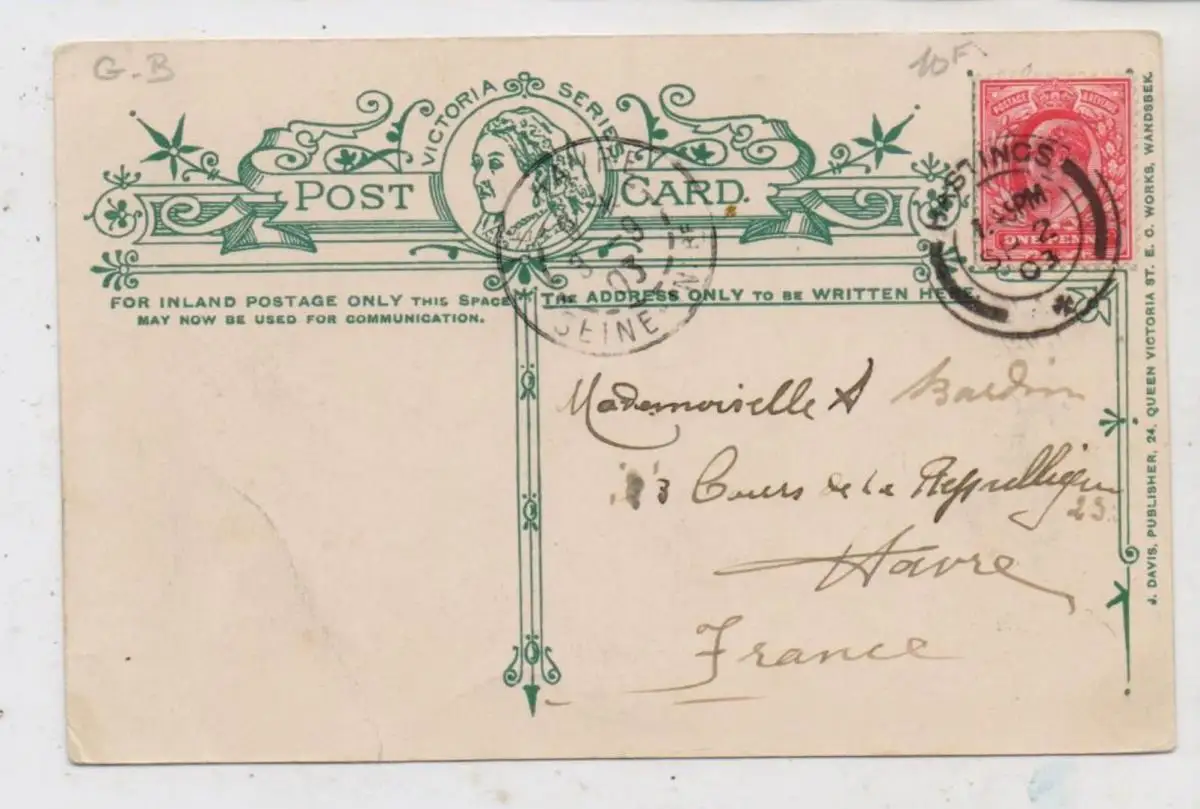 G.B
10F
VICTORIA SERIES
POST CARD.
FOR INLAND POSTAGE ONLY THIS SPACE
MAY NOW BE USED FOR COMMUNICATION.
THE ADDRESS ONLY TO BE WRITTEN HERE.
HAVRE
3 - 9
03
SEINE
POSTAGE
ONE PENNY
HASTINGS
PM
2
03
Mademoiselle A Bardin
3 Cours de la République
23
Havre
France
J. DAVIS, PUBLISHER, 24, QUEEN VICTORIA ST. E. C. WORKS, WANDSBEK.